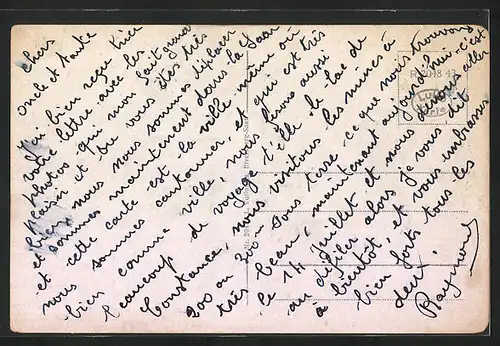 Chers
oncle et tante
J'ai bien reçu hier
votre lettre avec les
photos qui m'on fait grand
plaisir et où vous êtes très
bien, nous nous sommes déplacer
et sommes maintenant dans la Saar
et cette carte est la ville même où
nous sommes cantonner et qui est très
bien comme ville, nous avons aussi
beaucoup voyage t'elle le lac de
Constance, nous visitons les mines à
200 ou 300 sous terre ce que nous trouvons
très beau, maintenant aujourd'hui c'est
le 14 Juillet et nous devons aller
au défiler alors je vous dit
à bientôt et vous embrasse
bien forts tous les
deux.
Raymond